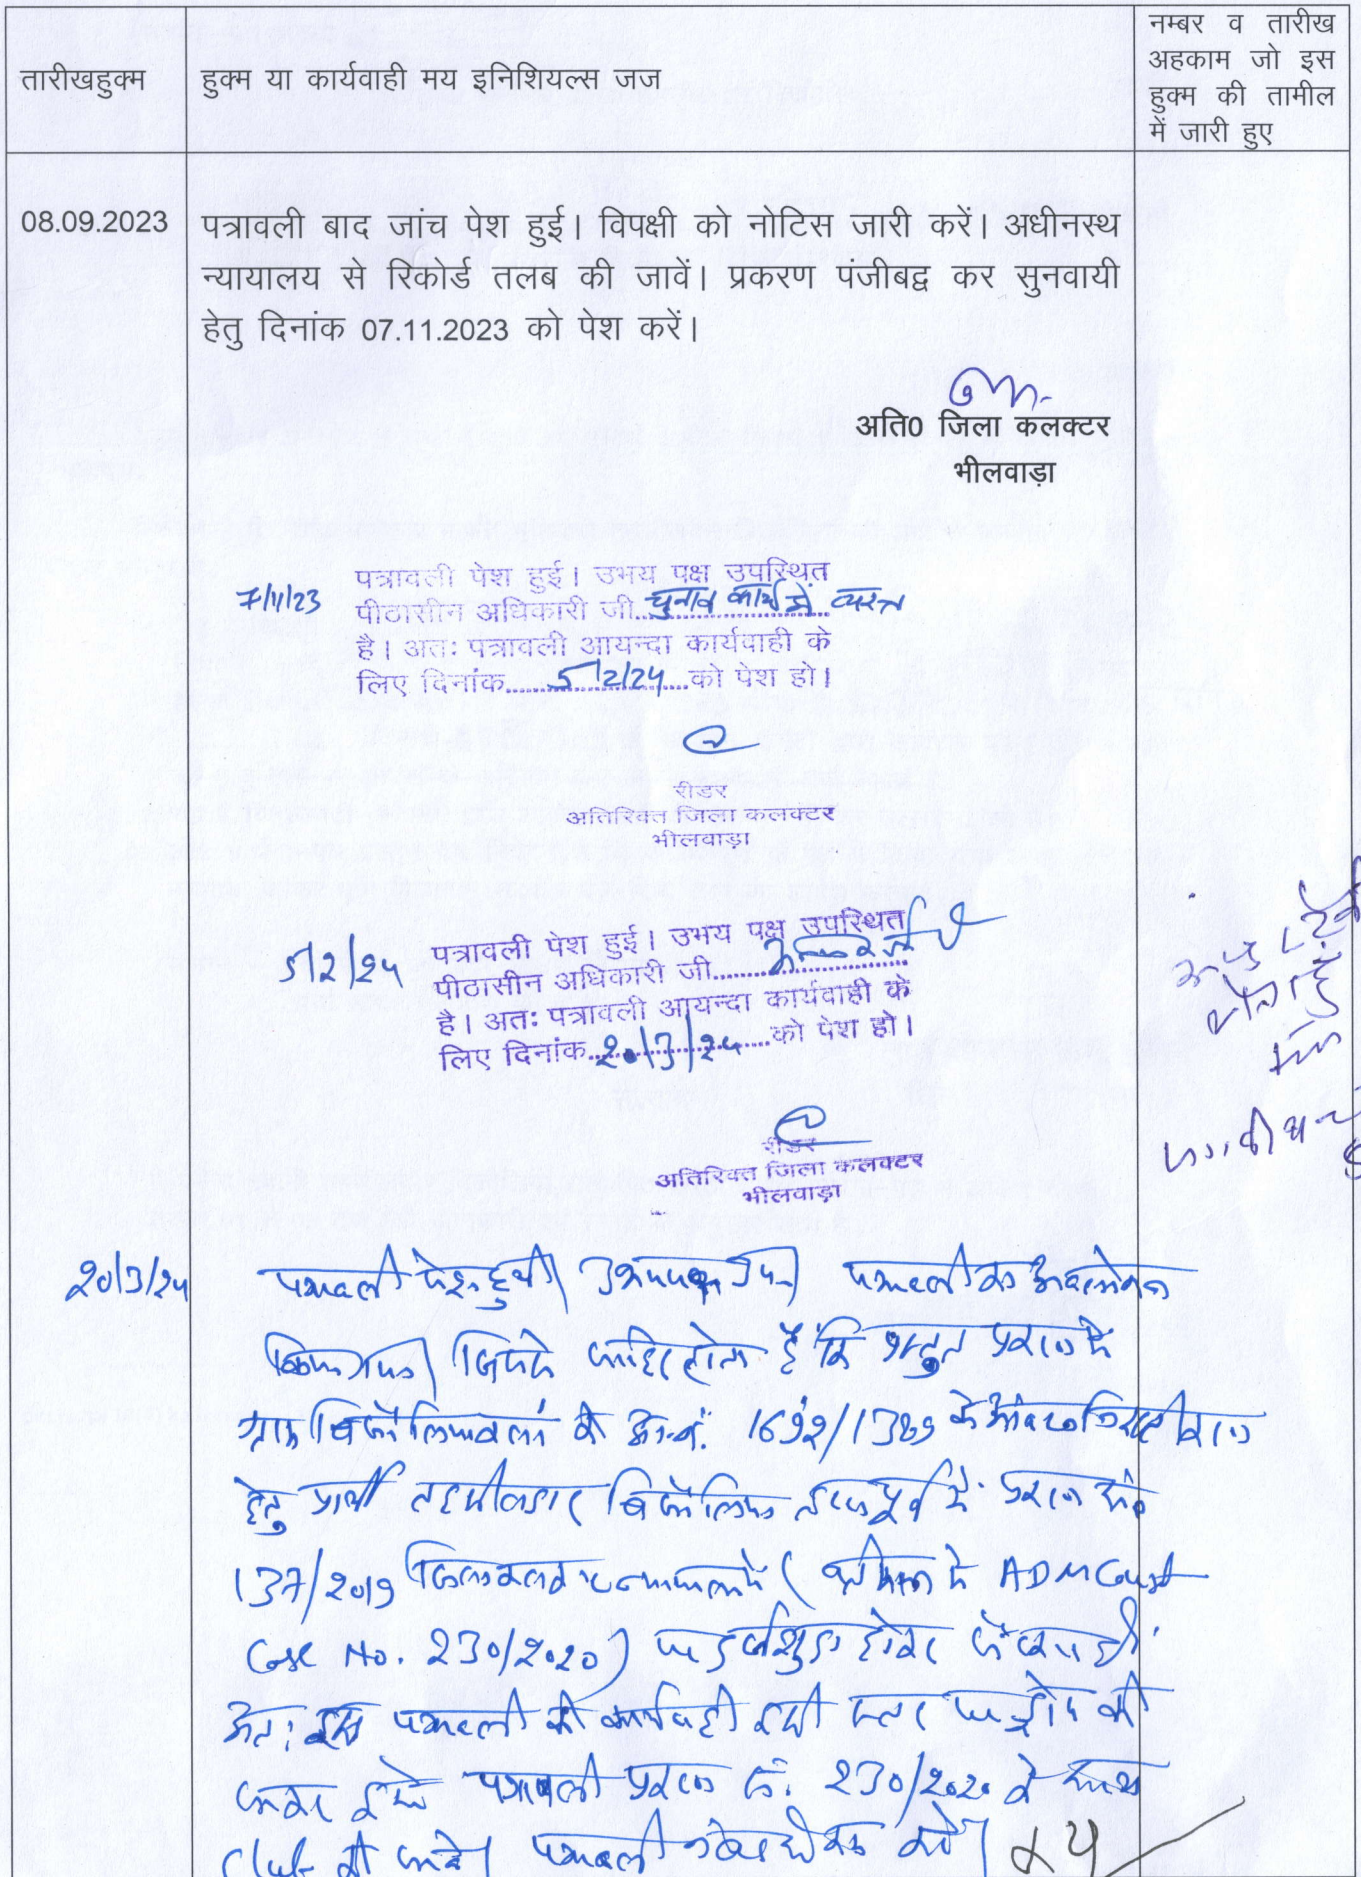 तारीखहुक्म
हुक्म या कार्यवाही मय इनिशियल्स जज
नम्बर व तारीख
अहकाम जो इस
हुक्म की तामील
में जारी हुए
08.09.2023
पत्रावली बाद जांच पेश हुई। विपक्षी को नोटिस जारी करें। अधीनस्थ
न्यायालय से रिकोर्ड तलब की जावें। प्रकरण पंजीबद्व कर सुनवायी
हेतु दिनांक 07.11.2023 को पेश करें।
अति0 जिला कलक्टर
भीलवाड़ा
7/11/23
पत्रावली पेश हुई। उभय पक्ष उपस्थित
पीठासीन अधिकारी जी चुनाव कार्य में व्यस्त
है। अतः पत्रावली आयन्दा कार्यवाही के
लिए दिनांक 5/2/24 को पेश हो।
रीडर
अतिरिक्त जिला कलक्टर
भीलवाड़ा
5/2/24
पत्रावली पेश हुई। उभय पक्ष उपस्थित
पीठासीन अधिकारी जी
है। अतः पत्रावली आयन्दा कार्यवाही के
लिए दिनांक 20/3/24 को पेश हो।
रीडर
अतिरिक्त जिला कलक्टर
भीलवाड़ा
20/3/24
पत्रावली पेश हुयी। उभयपक्ष उप. पत्रावली का अवलोकन
किया गया। जिससे जाहिर होता है कि प्रस्तुत प्रकरण में
ग्राम बिजौलियाकलां के आ.नं.
हेतु प्रार्थी तहसीलदार बिजौलिया पूर्व में प्रकरण सं०
137/2019 जिला कलक्टर न्यायालय में ( ADM Court
Case No. 230/2020) होकर
अतः इस पत्रावली की कार्यवाही इसी स्तर पर ड्रोप की
जाकर इसे पत्रावली प्रकरण सं. 230/2020 के साथ
Club की जावे। पत्रावली